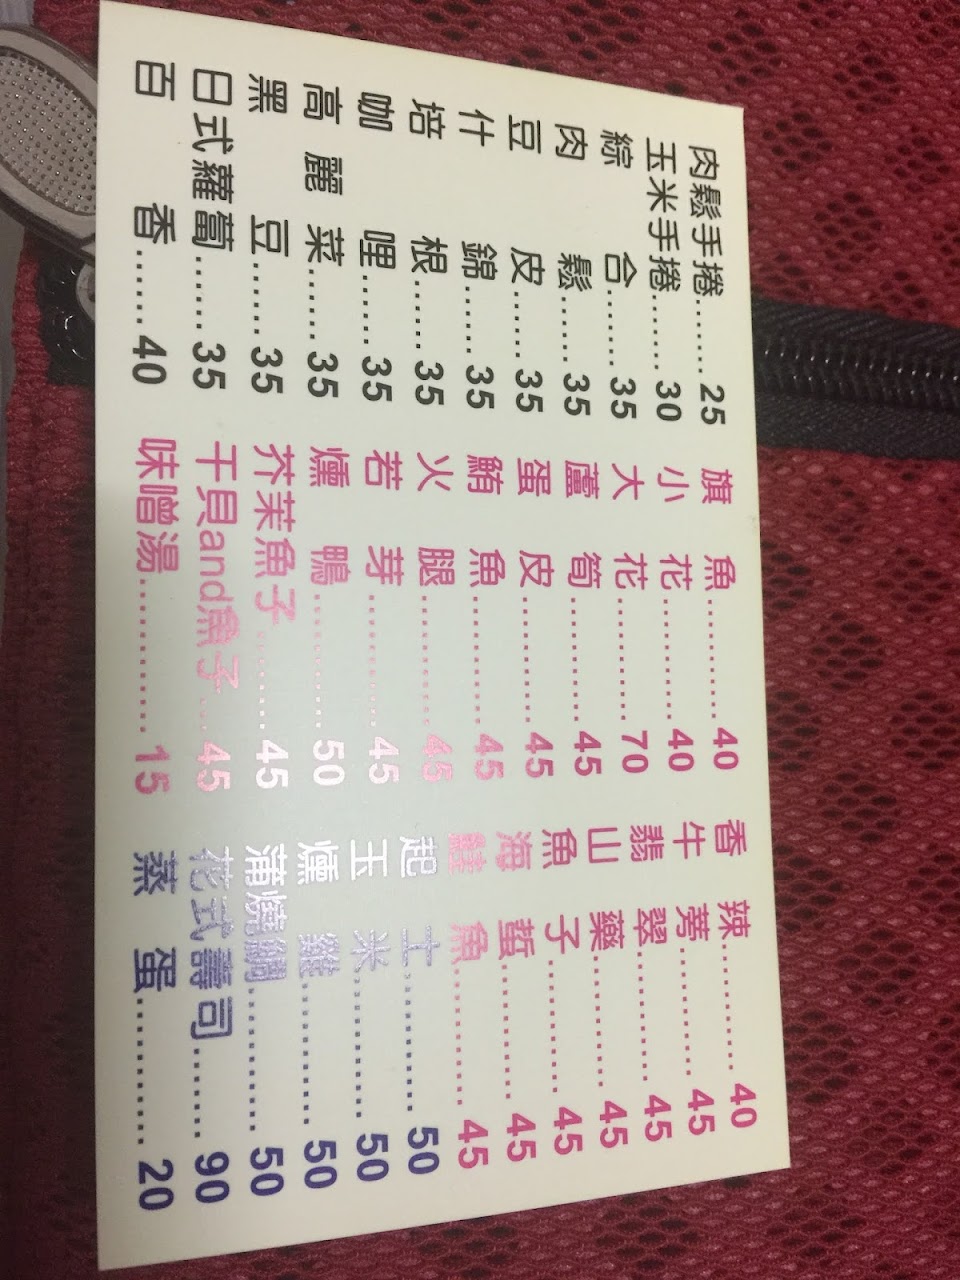 肉鬆手捲......25
玉米手捲......30
綜合......35
肉鬆......35
豆皮......35
什錦......35
培根......35
咖哩......35
高麗菜......35
黑豆......35
日式蘿蔔......35
百香......40
旗魚............40
小花............40
大花............70
蘆筍............45
蛋皮............45
鮪魚............45
火腿............45
若芽............45
燻鴨............50
芥茉魚子........45
干貝and魚子...45
味噌湯............15
香辣............40
牛蒡............45
翡翠............45
山藥............45
魚子............45
海蜇............45
鮭魚............45
起士............50
玉米............50
燻雞............50
蒲燒鯛............50
花式壽司........90
蒸蛋............20